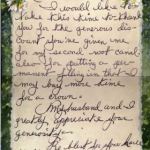 I would like to
take this time to thank
you for the generous dis-
count you've given me
for my second root canal
also for putting a per-
manent filling in that I
may buy more time
for a crown.
My husband and I
greatly appreciate your
generosity.